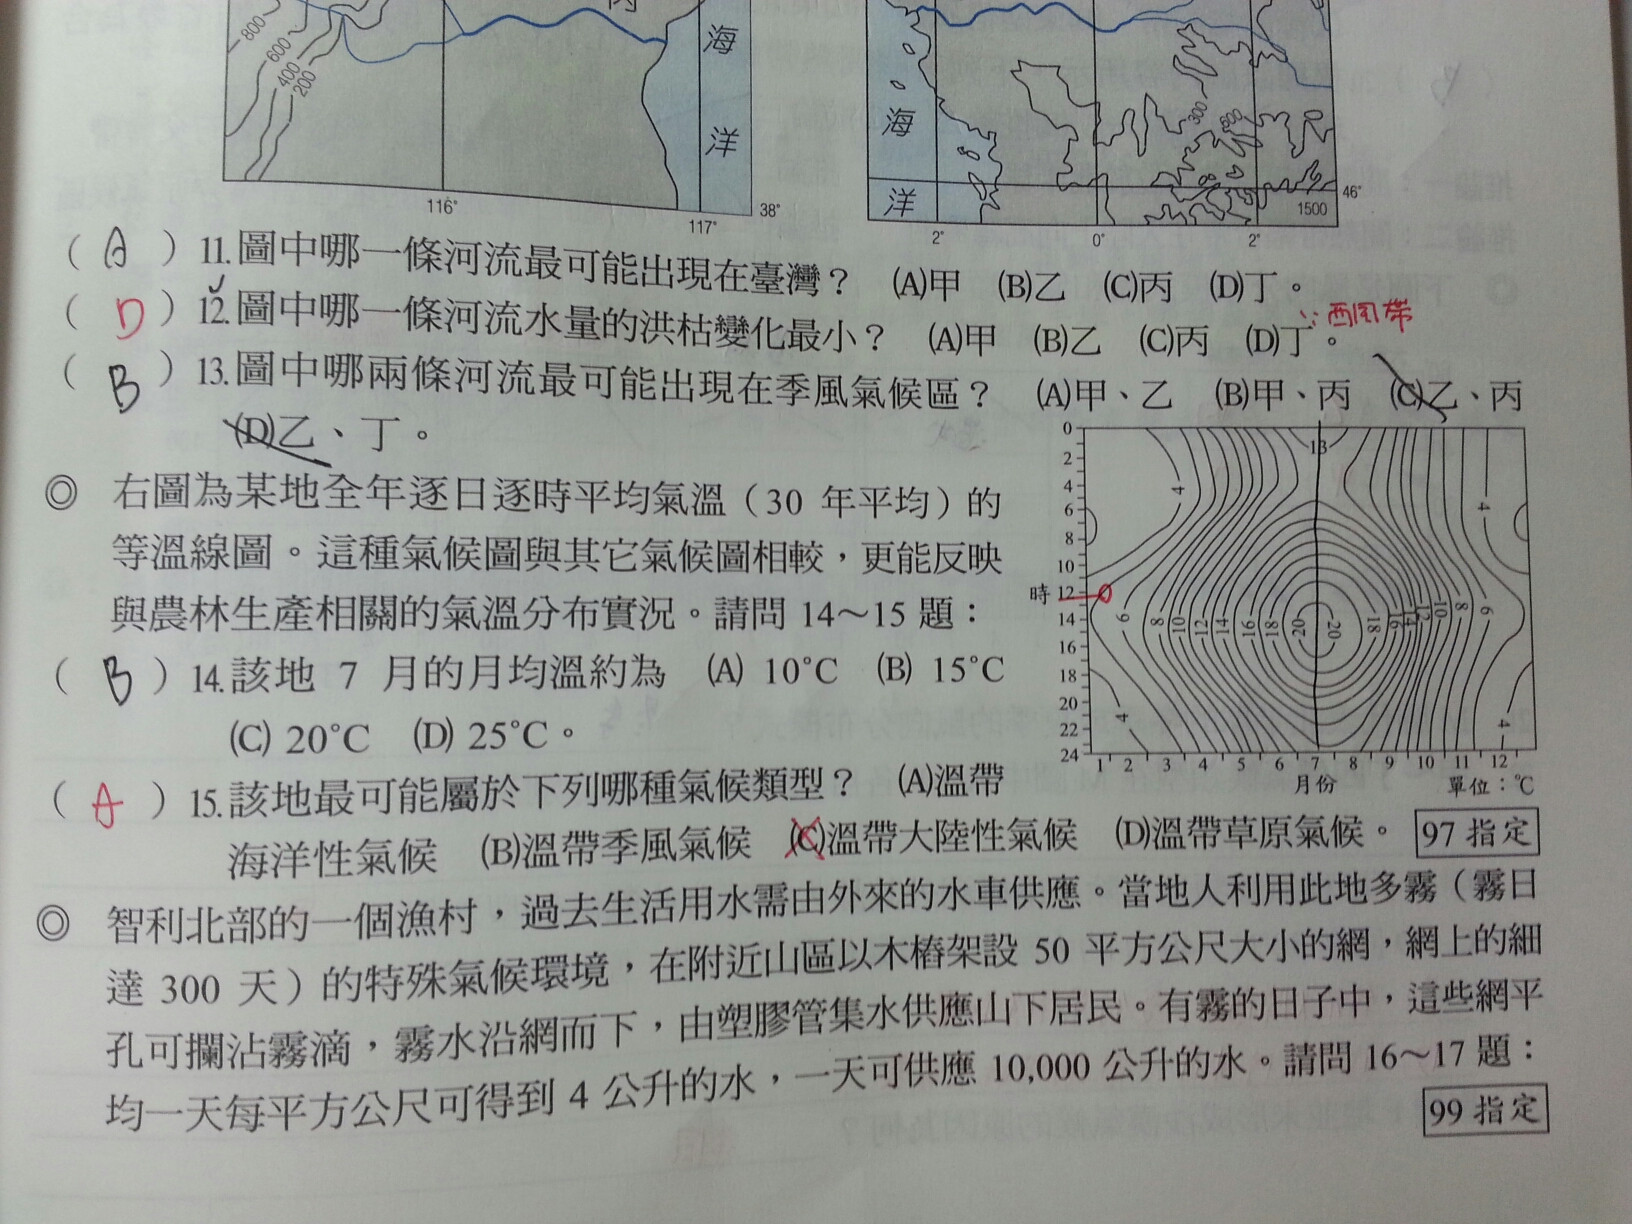 800
600
400
200
丙
海
洋
116°
117°
38°
海
洋
300
1500
46°
2°
0°
2°
( A ) 11.圖中哪一條河流最可能出現在臺灣? (A)甲 (B)乙 (C)丙 (D)丁。
( D ) 12.圖中哪一條河流水量的洪枯變化最小? (A)甲 (B)乙 (C)丙 (D)丁。
∵西風帶
( B ) 13.圖中哪兩條河流最可能出現在季風氣候區? (A)甲、乙 (B)甲、丙 (C)乙、丙
(D)乙、丁。
◎ 右圖為某地全年逐日逐時平均氣溫(30 年平均)的
等溫線圖。這種氣候圖與其它氣候圖相較,更能反映
與農林生產相關的氣溫分布實況。請問 14~15 題:
( B ) 14.該地 7 月的月均溫約為 (A) 10°C (B) 15°C
(C) 20°C (D) 25°C。
0
2
4
6
8
10
時 12
14
16
18
20
22
24
13
4 4
6 8 10 12 14 16 18 20 20 18 16 14 12 10 8 6
4 4
1 2 3 4 5 6 7 8 9 10 11 12
月份 單位:℃
( A ) 15.該地最可能屬於下列哪種氣候類型? (A)溫帶
海洋性氣候 (B)溫帶季風氣候 (C)溫帶大陸性氣候 (D)溫帶草原氣候。 97 指定
◎ 智利北部的一個漁村,過去生活用水需由外來的水車供應。當地人利用此地多霧(霧日
達 300 天)的特殊氣候環境,在附近山區以木樁架設 50 平方公尺大小的網,網上的細
孔可攔沾霧滴,霧水沿網而下,由塑膠管集水供應山下居民。有霧的日子中,這些網平
均一天每平方公尺可得到 4 公升的水,一天可供應 10,000 公升的水。請問 16~17 題:
99 指定